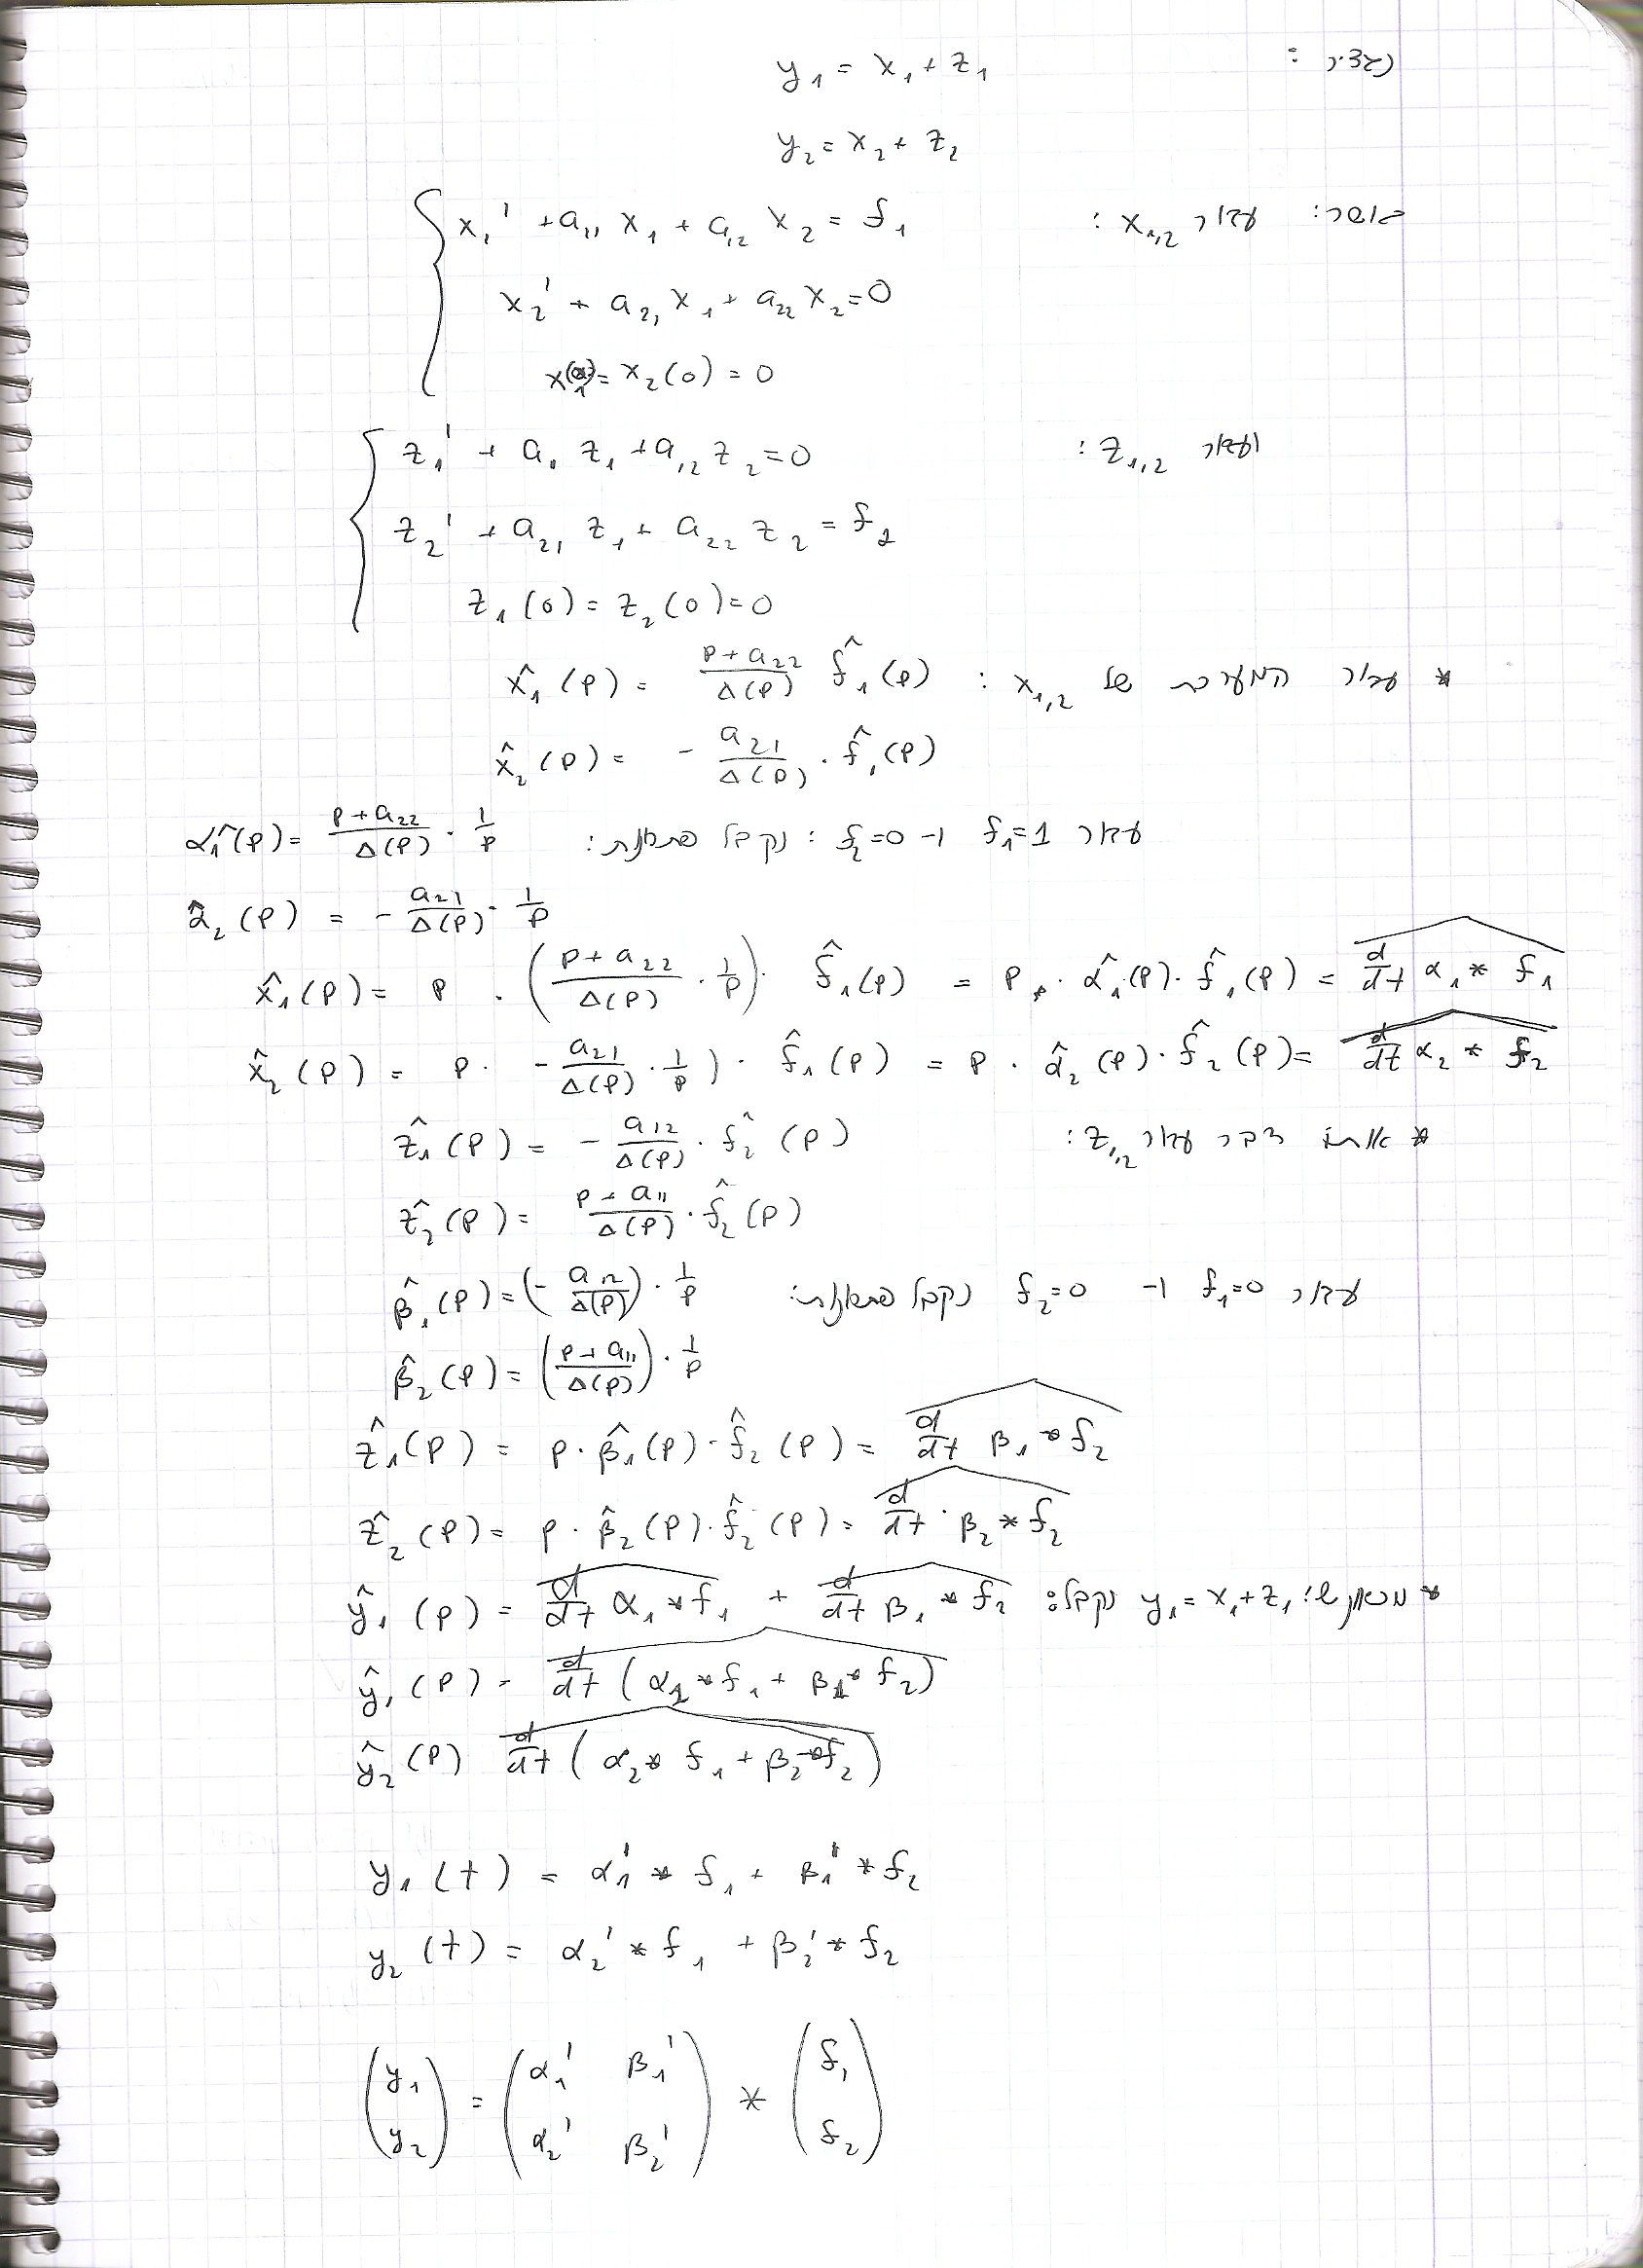 נגדיר : y₁ = x₁ + z₁
y₂ = x₂ + z₂
כאשר: עבור x₁,₂ : x₁' + a₁₁ x₁ + a₁₂ x₂ = f₁
x₂' + a₂₁ x₁ + a₂₂ x₂ = 0
x₁(0) = x₂(0) = 0
ועבור z₁,₂ : z₁' + a₁₁ z₁ + a₁₂ z₂ = 0
z₂' + a₂₁ z₁ + a₂₂ z₂ = f₂
z₁(0) = z₂(0) = 0
* עבור המערכת של x₁,₂ : x̂₁(p) = (p + a₂₂)/Δ(p) f̂₁(p)
x̂₂(p) = - a₂₁/Δ(p) · f̂₁(p)
עבור f₁=1 ו- f₂=0 : נקבל פתרונות: α̂₁(p) = (p + a₂₂)/Δ(p) · 1/p
α̂₂(p) = - a₂₁/Δ(p) · 1/p
x̂₁(p) = p · ((p + a₂₂)/Δ(p) · 1/p) · f̂₁(p) = p · α̂₁(p) · f̂₁(p) = d/dt α₁ * f₁
x̂₂(p) = p · - a₂₁/Δ(p) · 1/p ) · f̂₁(p) = p · α̂₂(p) · f̂₂(p) = d/dt α₂ * f₂
* אותו דבר עבור z₁,₂ : ẑ₁(p) = - a₁₂/Δ(p) · f̂₂(p)
ẑ₂(p) = (p + a₁₁)/Δ(p) · f̂₂(p)
עבור f₁=0 ו- f₂=0 נקבל פתרונות: β̂₁(p) = (- a₁₂/Δ(p)) · 1/p
β̂₂(p) = ((p + a₁₁)/Δ(p)) · 1/p
ẑ₁(p) = p · β̂₁(p) · f̂₂(p) = d/dt β₁ * f₂
ẑ₂(p) = p · β̂₂(p) · f̂₂(p) = d/dt · β₂ * f₂
* y₁ = x₁ + z₁ נקבל: ŷ₁(p) = d/dt α₁ * f₁ + d/dt β₁ * f₂
ŷ₁(p) = d/dt (α₁ * f₁ + β₁ * f₂)
ŷ₂(p) d/dt (α₂ * f₁ + β₂ * f₂)
y₁(t) = α₁' * f₁ + β₁' * f₂
y₂(t) = α₂' * f₁ + β₂' * f₂
(y₁ y₂) = (α₁' β₁' α₂' β₂') * (f₁ f₂)